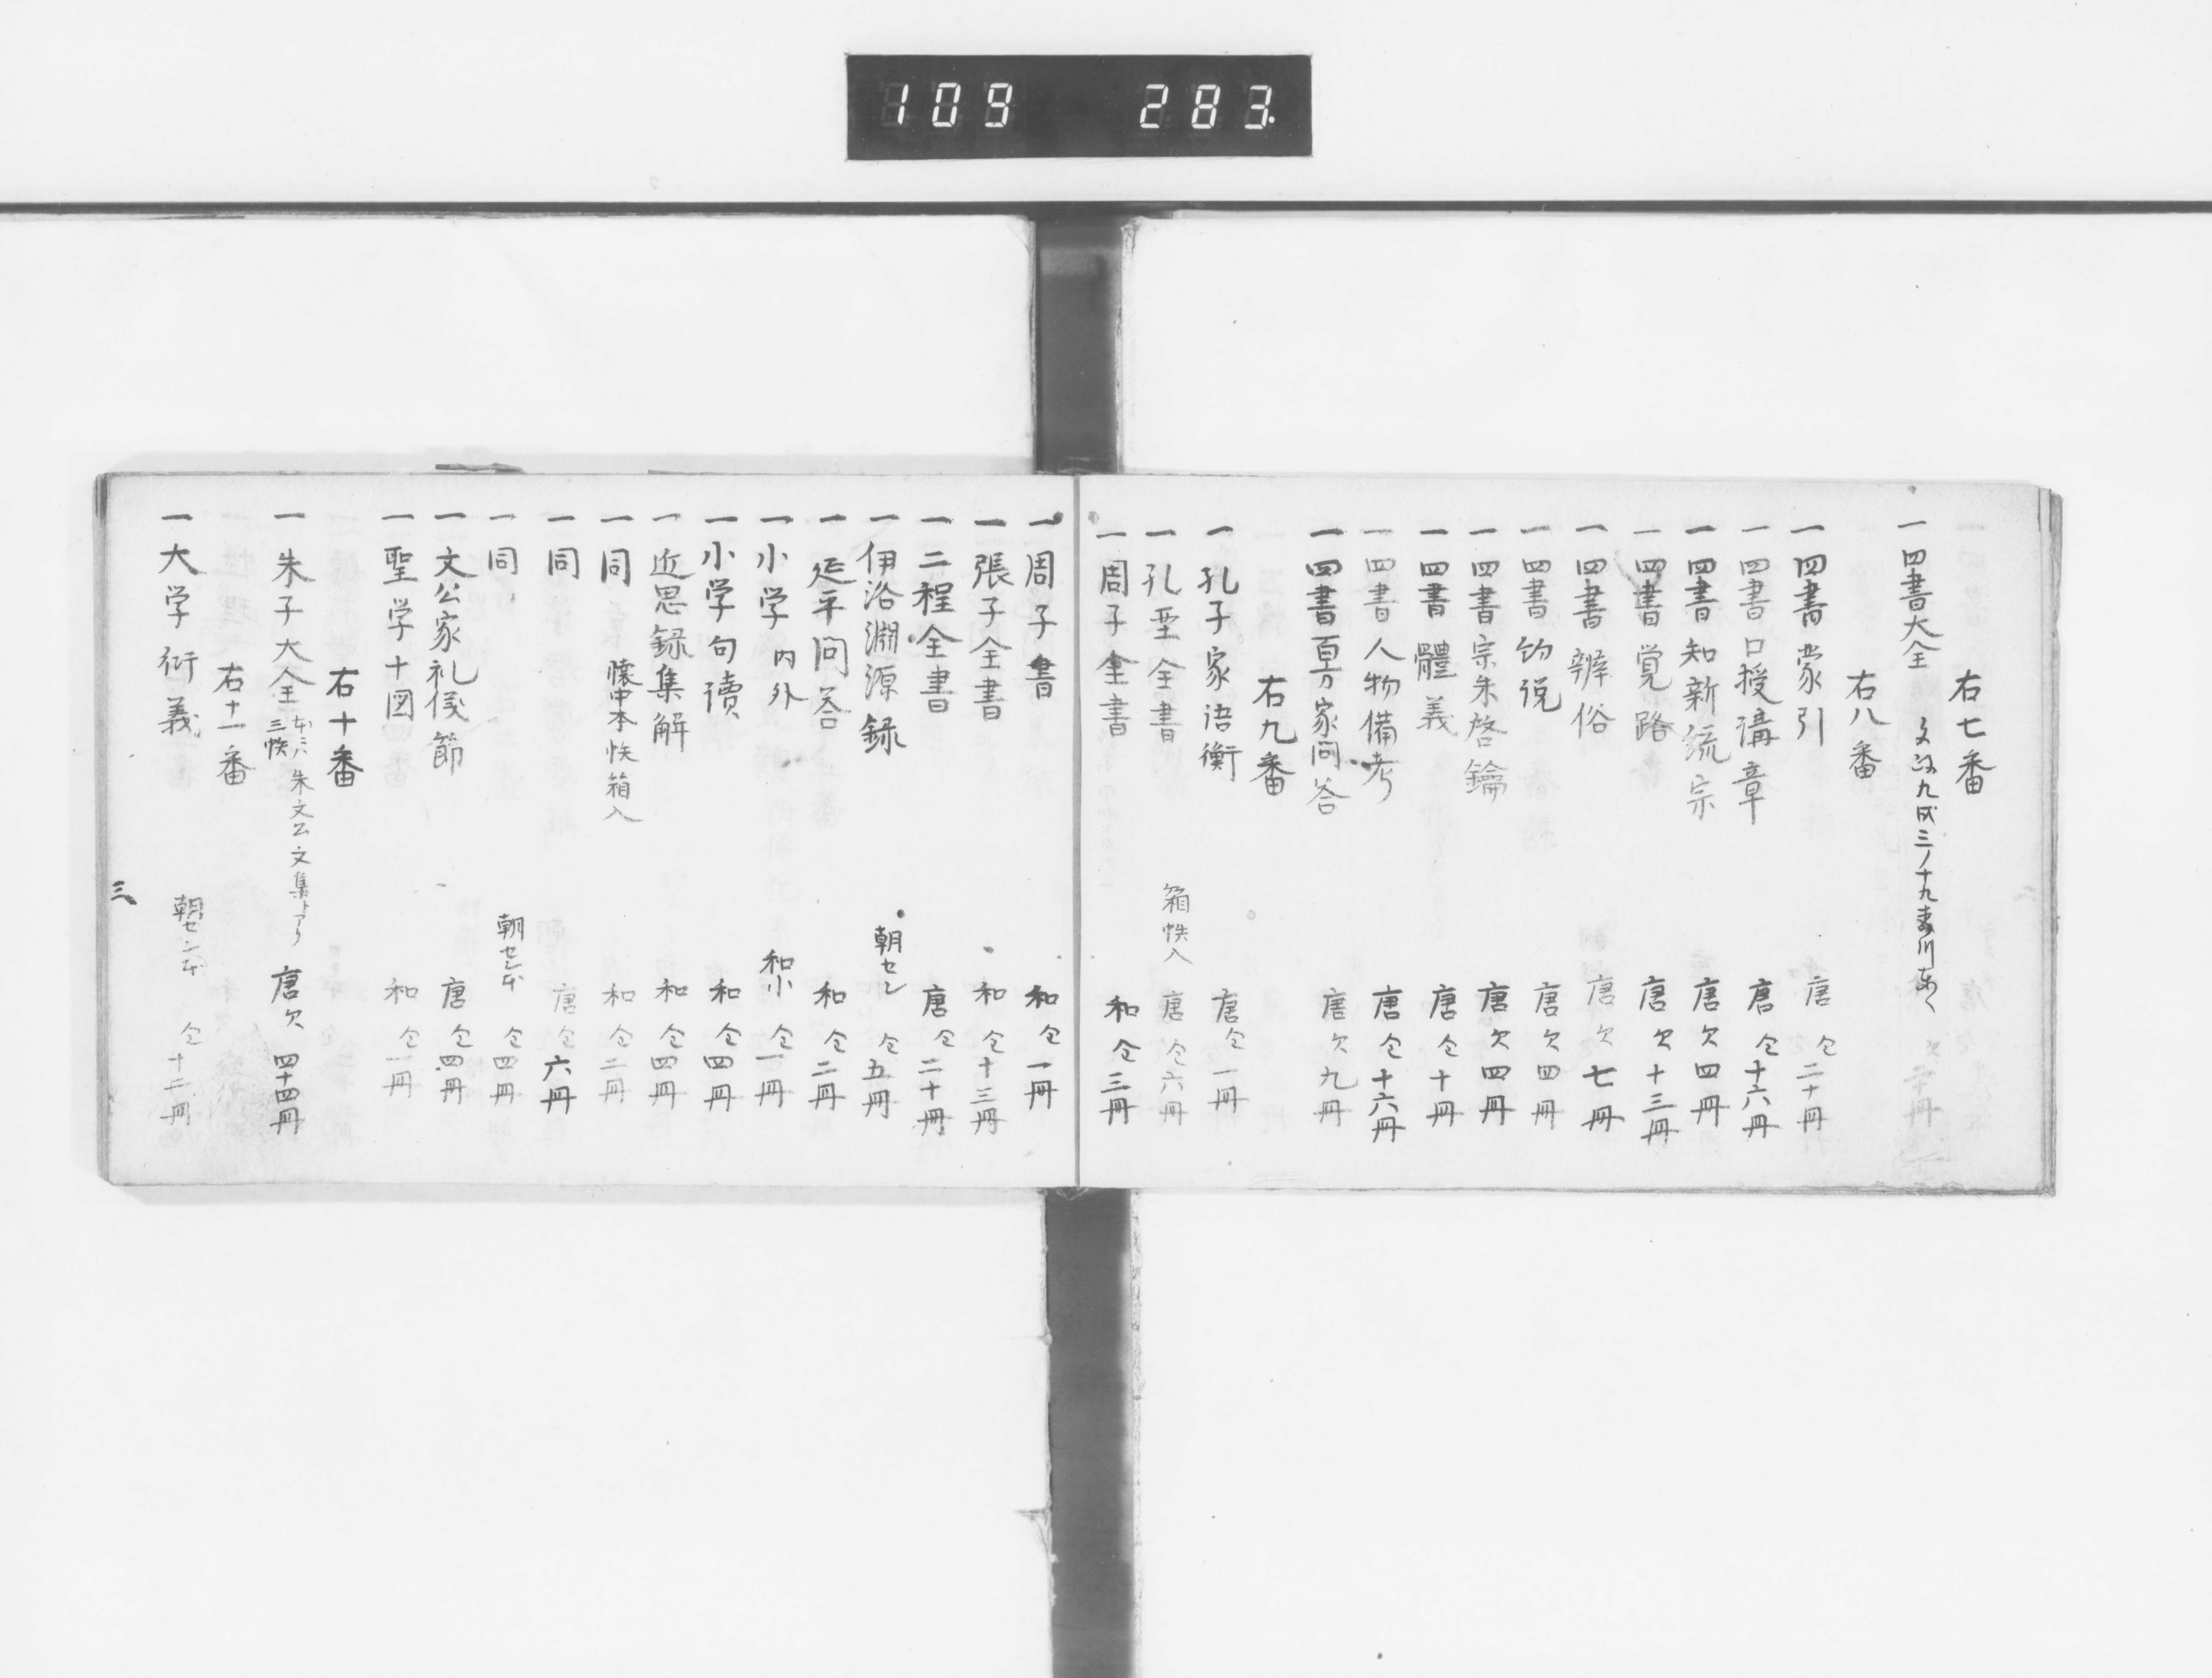 109 283.
右七番
一四書大全 九戌三ノ十九 欠 二十冊
右八番
一四書蒙引 唐 仝二十冊
一四書口授講章 唐 仝十六冊
一四書知新統宗 唐 欠四冊
一四書覚路 唐 欠十三冊
一四書辨俗 唐 欠七冊
一四書鈞説 唐 欠四冊
一四書宗朱啓鑰 唐 欠四冊
一四書體義 唐 仝十冊
一四書人物備考 唐 仝十六冊
一四書百方家問答 唐 欠九冊
右九番
一孔子家语衡 唐 仝一冊
一孔聖全書 箱帙入 唐 仝六冊
一周子全書 和 仝三冊
一周子書 和 仝一冊
一張子全書 和 仝十三冊
一二程全書 唐 仝二十冊
一伊洛淵源録 朝セン 仝五冊
一延平問答 和 仝二冊
一小学内外 和小 仝一冊
一小学句讀 和 仝四冊
一近思録集解 和 仝四冊
一同 懐中本帙箱入 和 仝二冊
一同 唐 仝六冊
一同 朝セン本 仝四冊
一文公家礼儀節 唐 仝四冊
一聖学十図 和 仝一冊
右十番
一朱子大全 本ニハ朱文公文集トアリ 三帙 唐 欠 四十四冊
右十一番
一大学衍義 朝セン本 仝十二冊
三